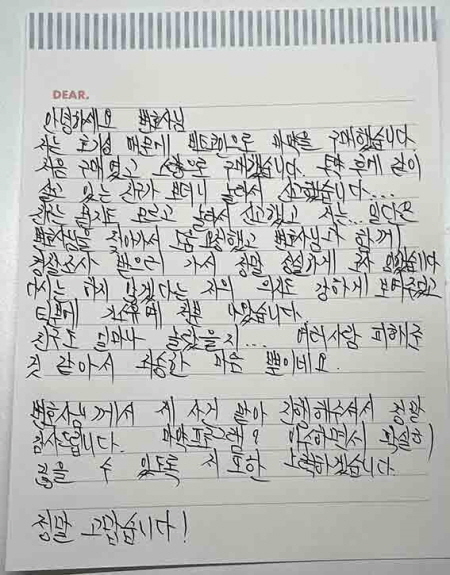 DEAR.
안녕하세요 변호사님
저는 호기심 때문에 비트코인으로 마약을 구매했습니다
처음 구매였고 소량으로 구매했습니다. 투약 후에 같이
살고 있는 친구가 보더니 놀라서 신고했습니다...
친구는 뭔지도 모르고 놀라서 신고했고 저는... 일단은
변호사님을 찾아가서 도움 요청했고 변호사님과 함께
경찰조사 받으러 가서 정말 성실하게 조사 받았습니다
다시는 하지 않겠다는 저의 의지도 강하게 보여주었고
덕분에 기소유예 처분 나왔습니다.
친구도 얼마나 놀랐을지... 여러사람 피해준
것 같아서 죄송한 마음 뿐이네요.
변호사님께서 제 사건 맡아 진행해주셔서 정말
감사드립니다. 마약프로그램? 이수하면서 확실히
끊을 수 있도록 저 또한 노력하겠습니다.
정말 고맙습니다!